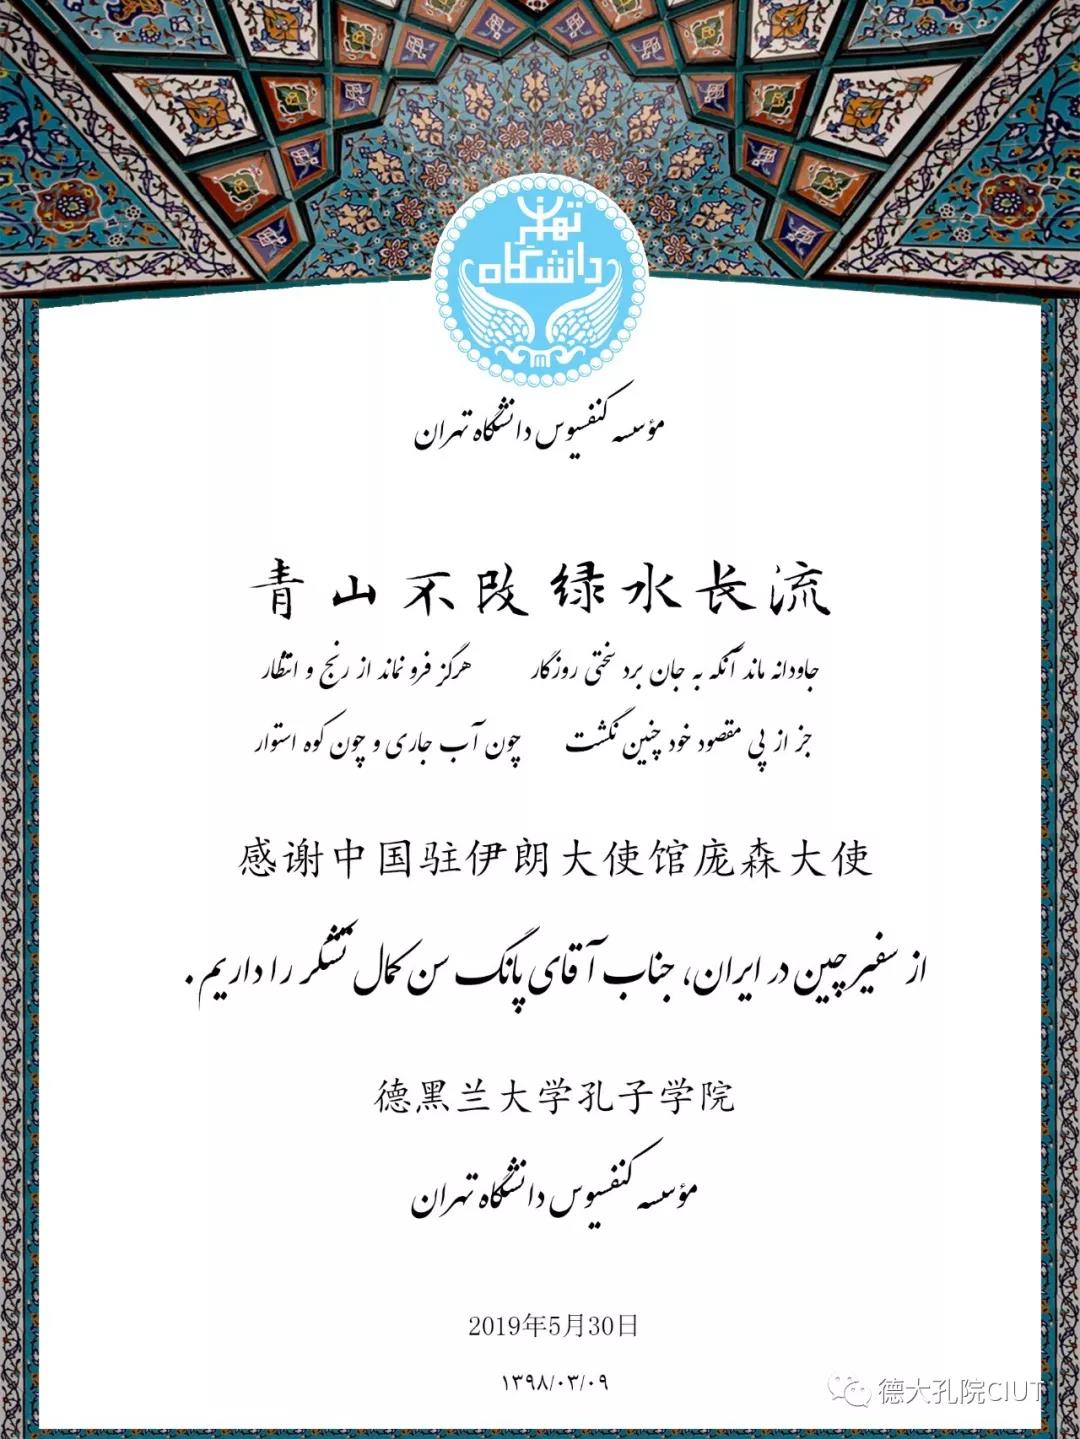 دانشگاه تهران
مؤسسه کنفسیوس دانشگاه تهران
青山不改绿水长流
جاودانه ماند آنکه به جان برد سختی روزگار هرگز فرو نماند از رنج و انتظار
جز از پی مقصود خود چنین نگشت چون آب جاری و چون کوه استوار
感谢中国驻伊朗大使馆庞森大使
از سفیر چین در ایران، جناب آقای پانگ سن کمال تشکر را داریم.
德黑兰大学孔子学院
مؤسسه کنفسیوس دانشگاه تهران
2019年5月30日
۱۳۹۸/۰۳/۰۹
德大孔院CIUT